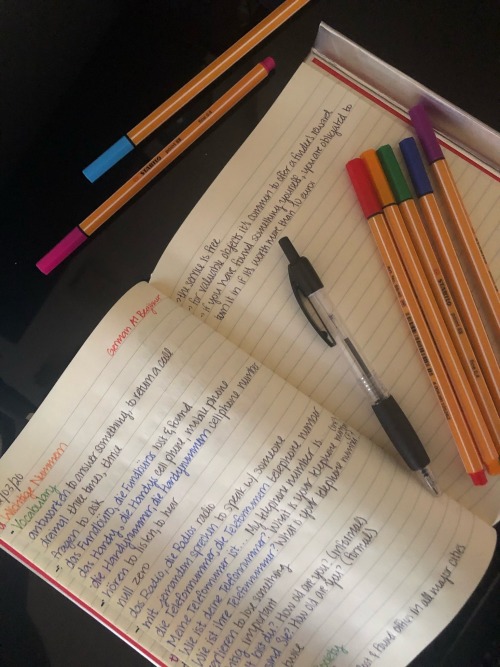 German A1 Beginner
Wichtige Nummern
- Vocabulary
antworten to answer something, to return a call
dreimal three times, thrice
- fragen to ask
das Fundbüro, die Fundbüros lost & found
das Handy, die Handys cell phone, mobile phone
die Handynummer, die Handynummern cellphone number
- hören to listen, to hear
null zero
das Radio, die Radios radio
mit jemandem sprechen to speak with someone
die Telefonnummer, die Telefonnummern telephone number
Meine Telefonnummer ist ... My telephone number is ...
Wie ist deine Telefonnummer? What is your telephone number?
Wie ist Ihre Telefonnummer? What is your telephone number?
verlieren to lose something
important
bist du? How old are you? (informal)
sind Sie? How old are you? (formal)
& found offices in all major cities
- the service is free
- for valuable objects it's common to offer a finder's reward
- if you have found something yourself, you are obligated to
turn it in if it's worth more than 10 euros
STABILO
STABILO
STABILO